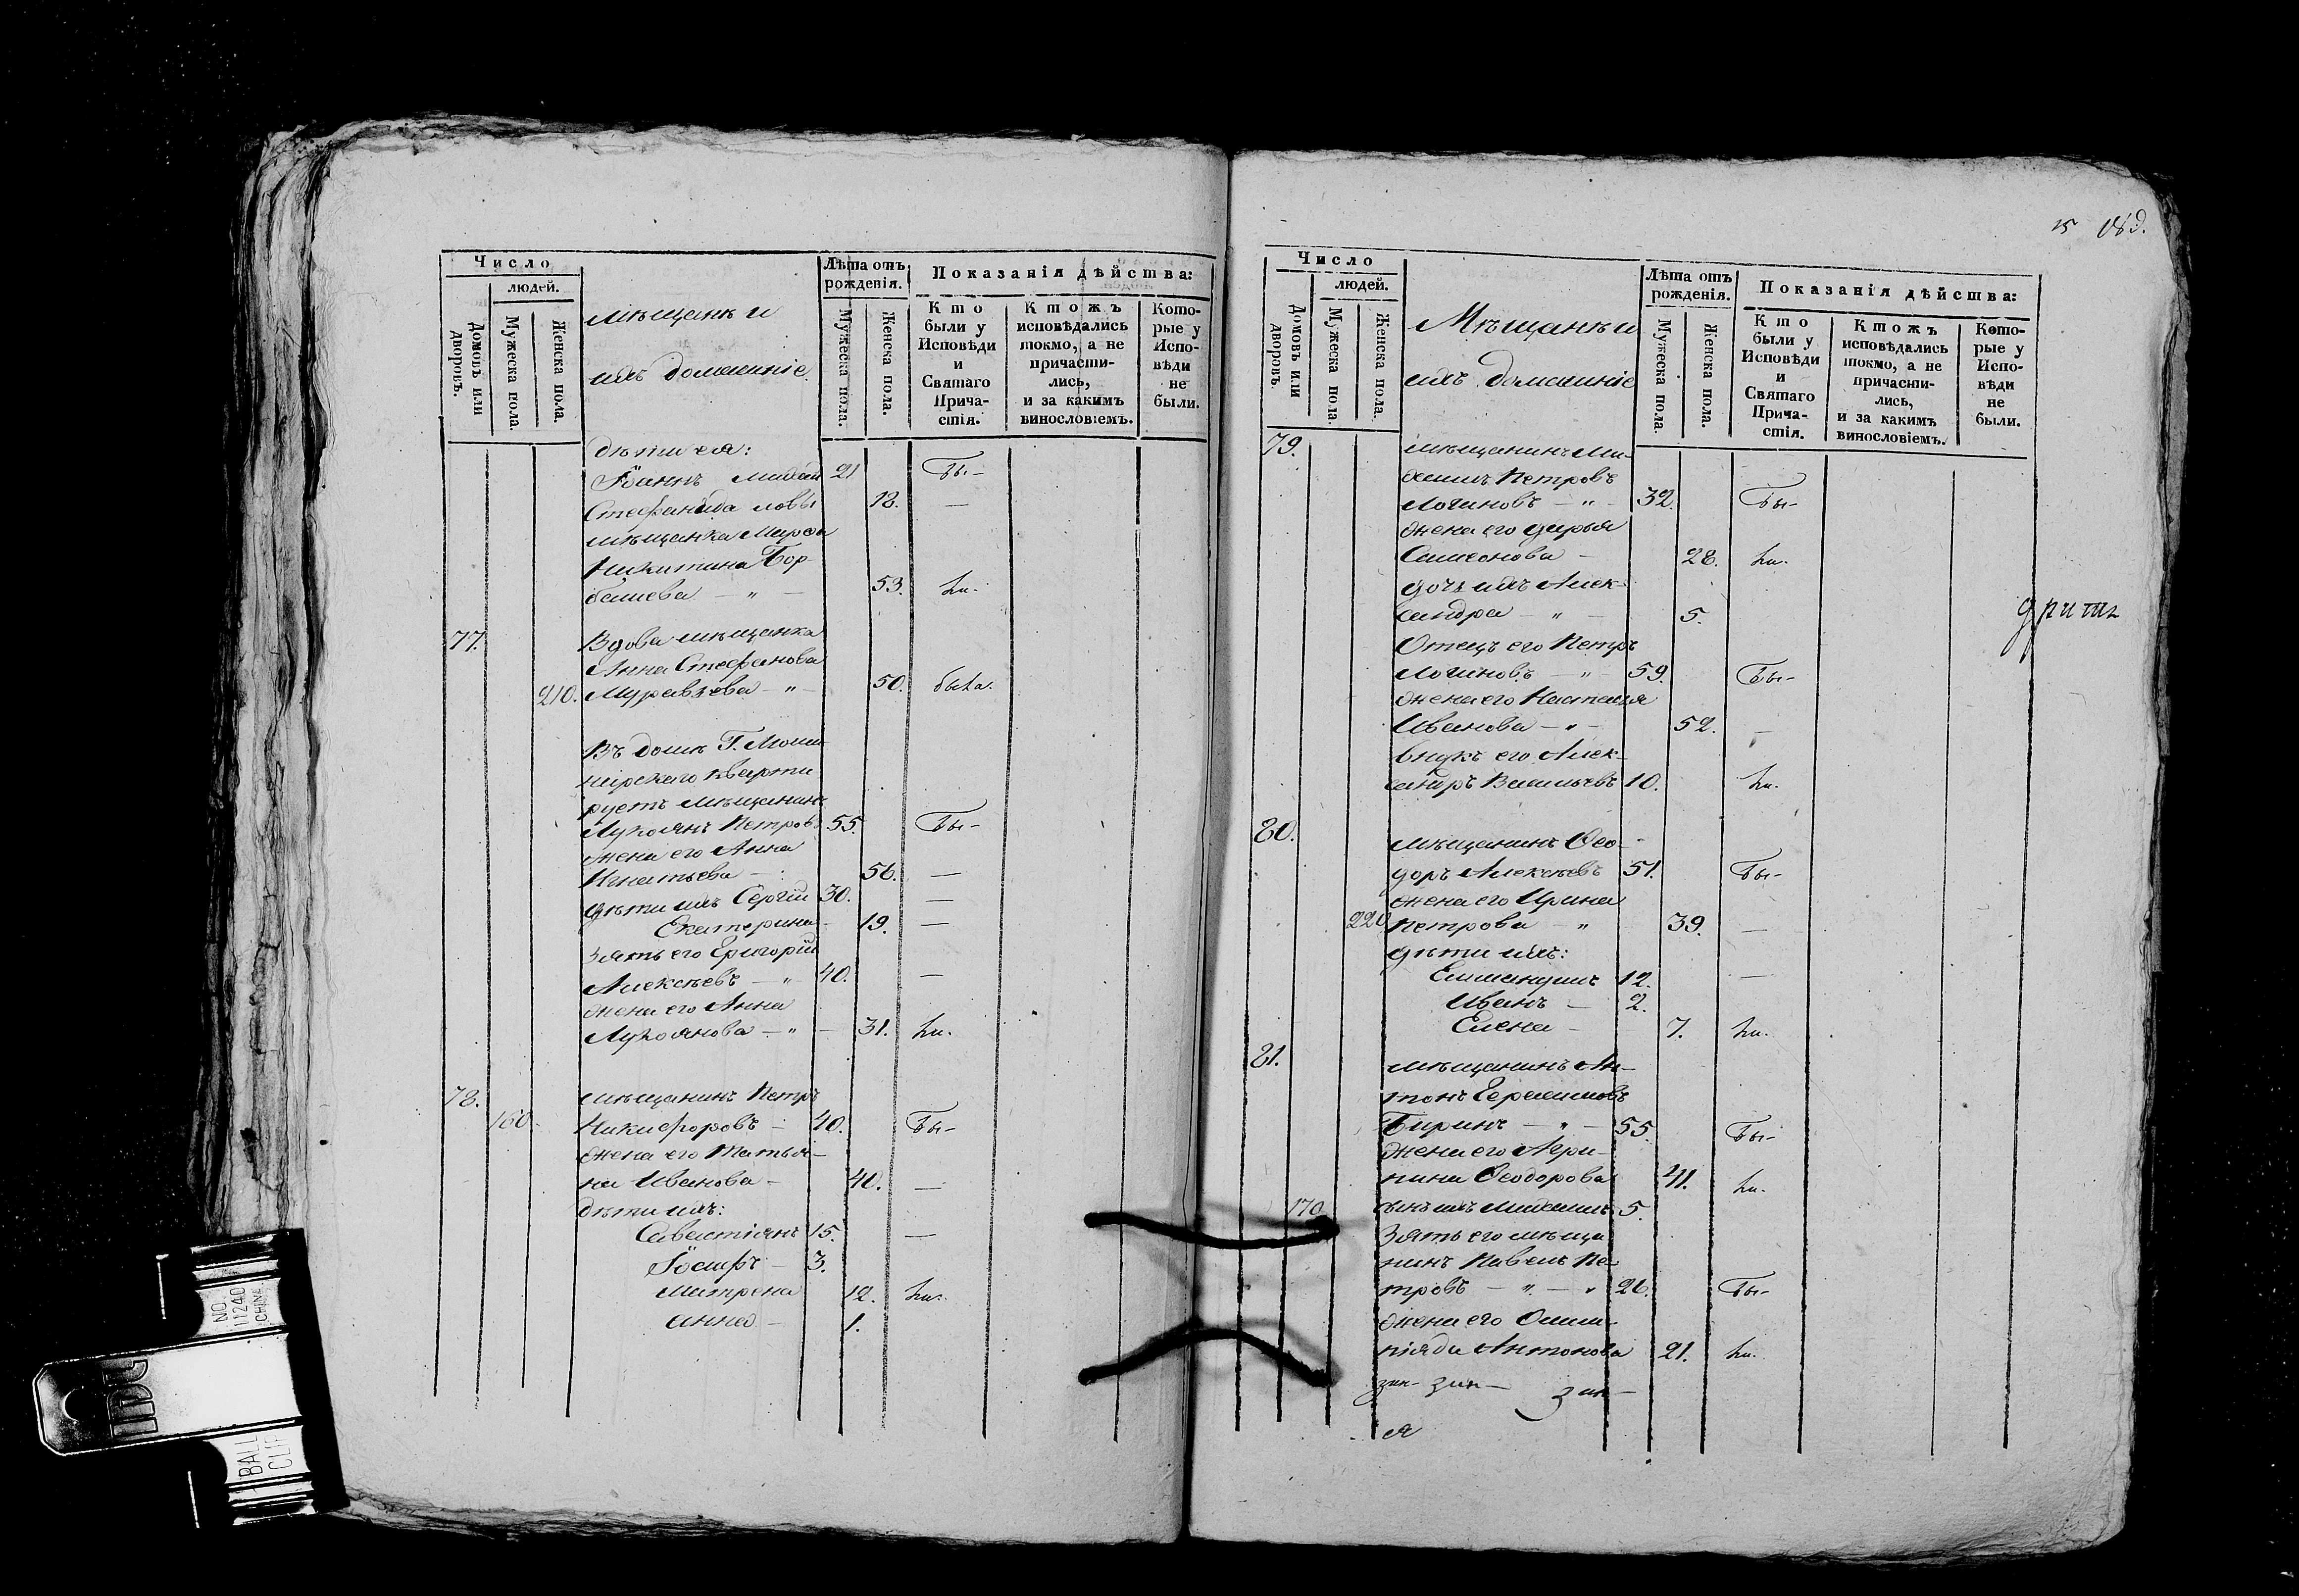 Число
людей.
Домовъ или дворовъ.
Мужеска пола.
Женска пола.
мѣщане и
ихъ домашніе
Лѣта отъ рожденія.
Мужеска пола.
Женска пола.
Показанія дѣйства:
Кто были у Исповѣди и Святаго Прича-стія.
Ктожъ исповѣдались токмо, а не причасти-лись, и за какимъ винословіемъ.
Кото-рые у Испо-вѣди не были.
дѣти ея:
Іоаннъ Михай 21 Бы-
Стефанида ловы 18. —
мѣщанка Марѳа
Никитина Бор-
башева — " — 53. ли.
77. Вдова мѣщанка
Анна Стефанова
210. Муравьева — " — 50. была.
Въ домѣ Г. Мош-
нирскаго кварти
руетъ мѣщанинъ
Лукоянъ Петровъ 55. Бы-
жена его Анна
Игнатьева — 56. —
дѣти ихъ Сергій 30. —
Екатерина 19. —
Зять его Григорій
Алексѣевъ — " 40. —
жена его Анна
Лукоянова — " — 31. ли.
78. мѣщанинъ Петръ
160. Никифоровъ — 40. Бы-
жена его Татья-
на Иванова — 40. —
дѣти ихъ:
Севастіянъ 15. —
Іосифъ — 3.
Матрена 12. ли.
Анна — 1.
15
Число
людей.
Домовъ или дворовъ.
Мужеска пола.
Женска пола.
Мѣщане и
ихъ домашніе
Лѣта отъ рожденія.
Мужеска пола.
Женска пола.
Показанія дѣйства:
Кто были у Исповѣди и Святаго Прича-стія.
Ктожъ исповѣдались токмо, а не причасти-лись, и за какимъ винословіемъ.
Кото-рые у Испо-вѣди не были.
79. мѣщанинъ Ми-
хаилъ Петровъ
Логиновъ — " — 32. Бы-
жена его Дарья
Симеонова — 28. ли.
дочь ихъ Алек-
сандра — " — 5.
Отецъ его Петръ
Логиновъ — " 59. Бы-
жена его Наталья
Иванова — " — 52. —
внукъ его Алек-
сандръ Васильевъ 10. ли.
80. мѣщанинъ Ѳео-
доръ Алексѣевъ 51. Бы-
жена его Ирина
220. Петрова — " 39. —
дѣти ихъ:
12. —
Иванъ — 2.
Елена — 7. ли.
81. мѣщанинъ Ан-
тонъ Герасимовъ
Биринъ — " — 55. Бы-
жена его Агри-
пина Ѳеодорова 41. ли.
170. сынъ ихъ Михаилъ 5.
Зять его мѣща
нинъ Павелъ Пе-
тровъ — " — " 26. Бы-
жена его Олим-
піяда Антонова 21. ли.
NO.
11240
CHINA
BALL
CLIP